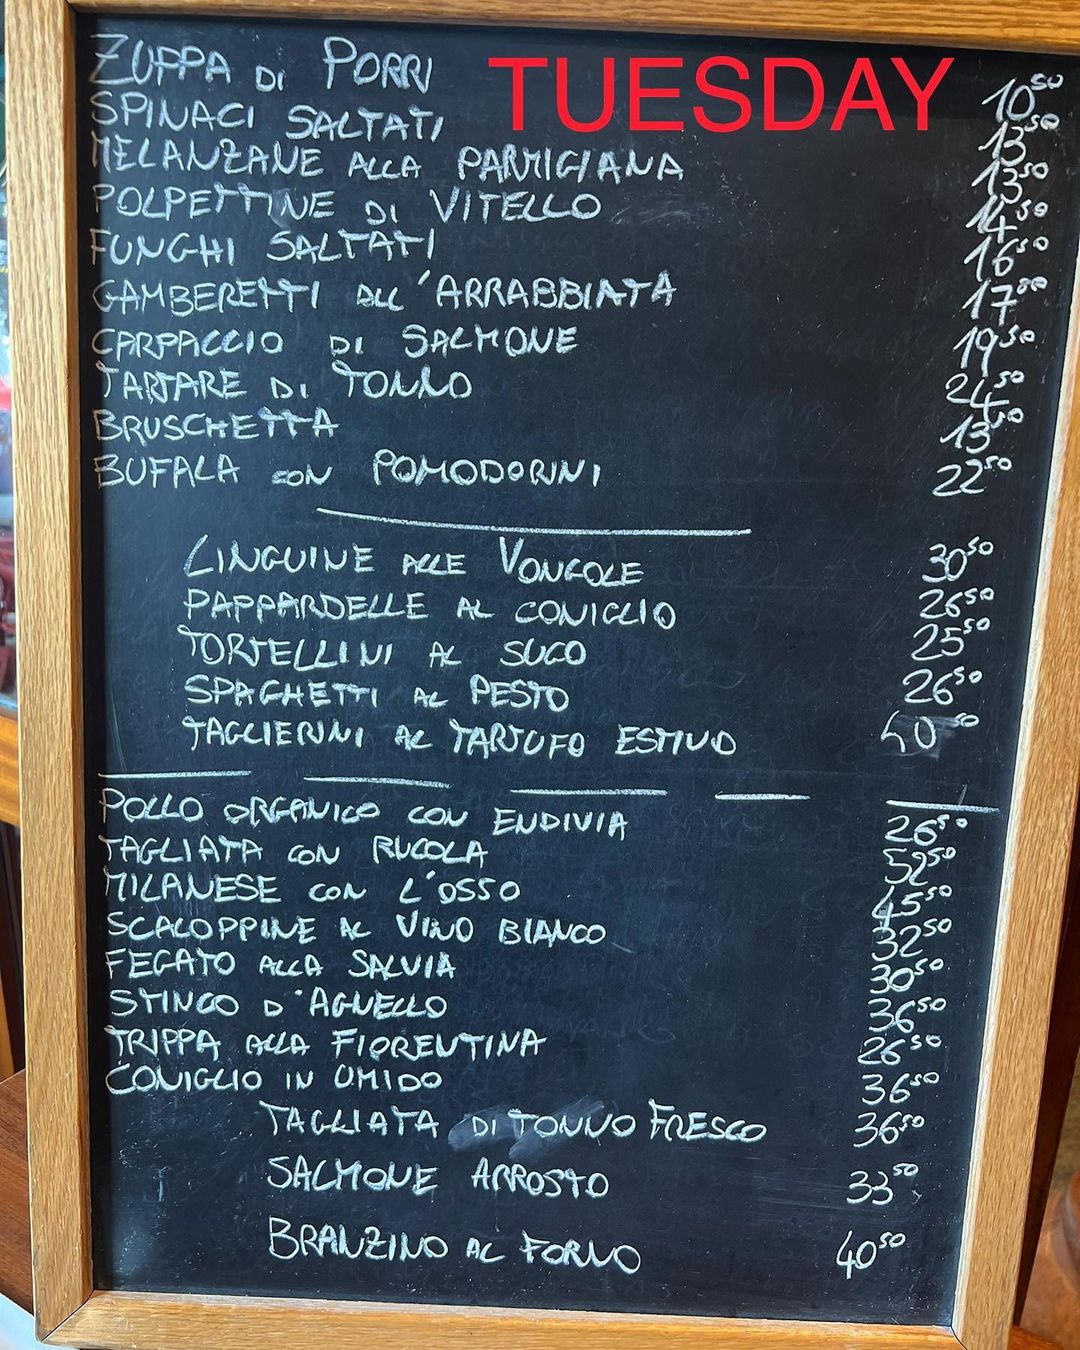 TUESDAY
ZUPPA DI PORRI 10⁵⁰
SPINACI SALTATI 13⁵⁰
MELANZANE ALLA PARMIGIANA 13⁵⁰
POLPETTINE DI VITELLO 14⁵⁰
FUNGHI SALTATI 16⁵⁰
GAMBERETTI ALL'ARRABBIATA 17⁵⁰
CARPACCIO DI SALMONE 19⁵⁰
TARTARE DI TONNO 24⁵⁰
BRUSCHETTA 13⁵⁰
BUFALA CON POMODORINI 22⁵⁰
LINGUINE ALLE VONGOLE 30⁵⁰
PAPPARDELLE AL CONIGLIO 26⁵⁰
TORTELLINI AL SUGO 25⁵⁰
SPAGHETTI AL PESTO 26⁵⁰
TAGLIERINI AL TARTUFO ESTIVO 50⁵⁰
POLLO ORGANICO CON ENDIVIA 26⁵⁰
TAGLIATA CON RUCOLA 52⁵⁰
MILANESE CON L'OSSO 45⁵⁰
SCALOPPINE AL VINO BIANCO 32⁵⁰
FEGATO ALLA SALVIA 30⁵⁰
STINCO D'AGNELLO 36⁵⁰
TRIPPA ALLA FIORENTINA 26⁵⁰
CONIGLIO IN UMIDO 36⁵⁰
TAGLIATA DI TONNO FRESCO 36⁵⁰
SALMONE ARROSTO 33⁵⁰
BRANZINO AL FORNO 40⁵⁰